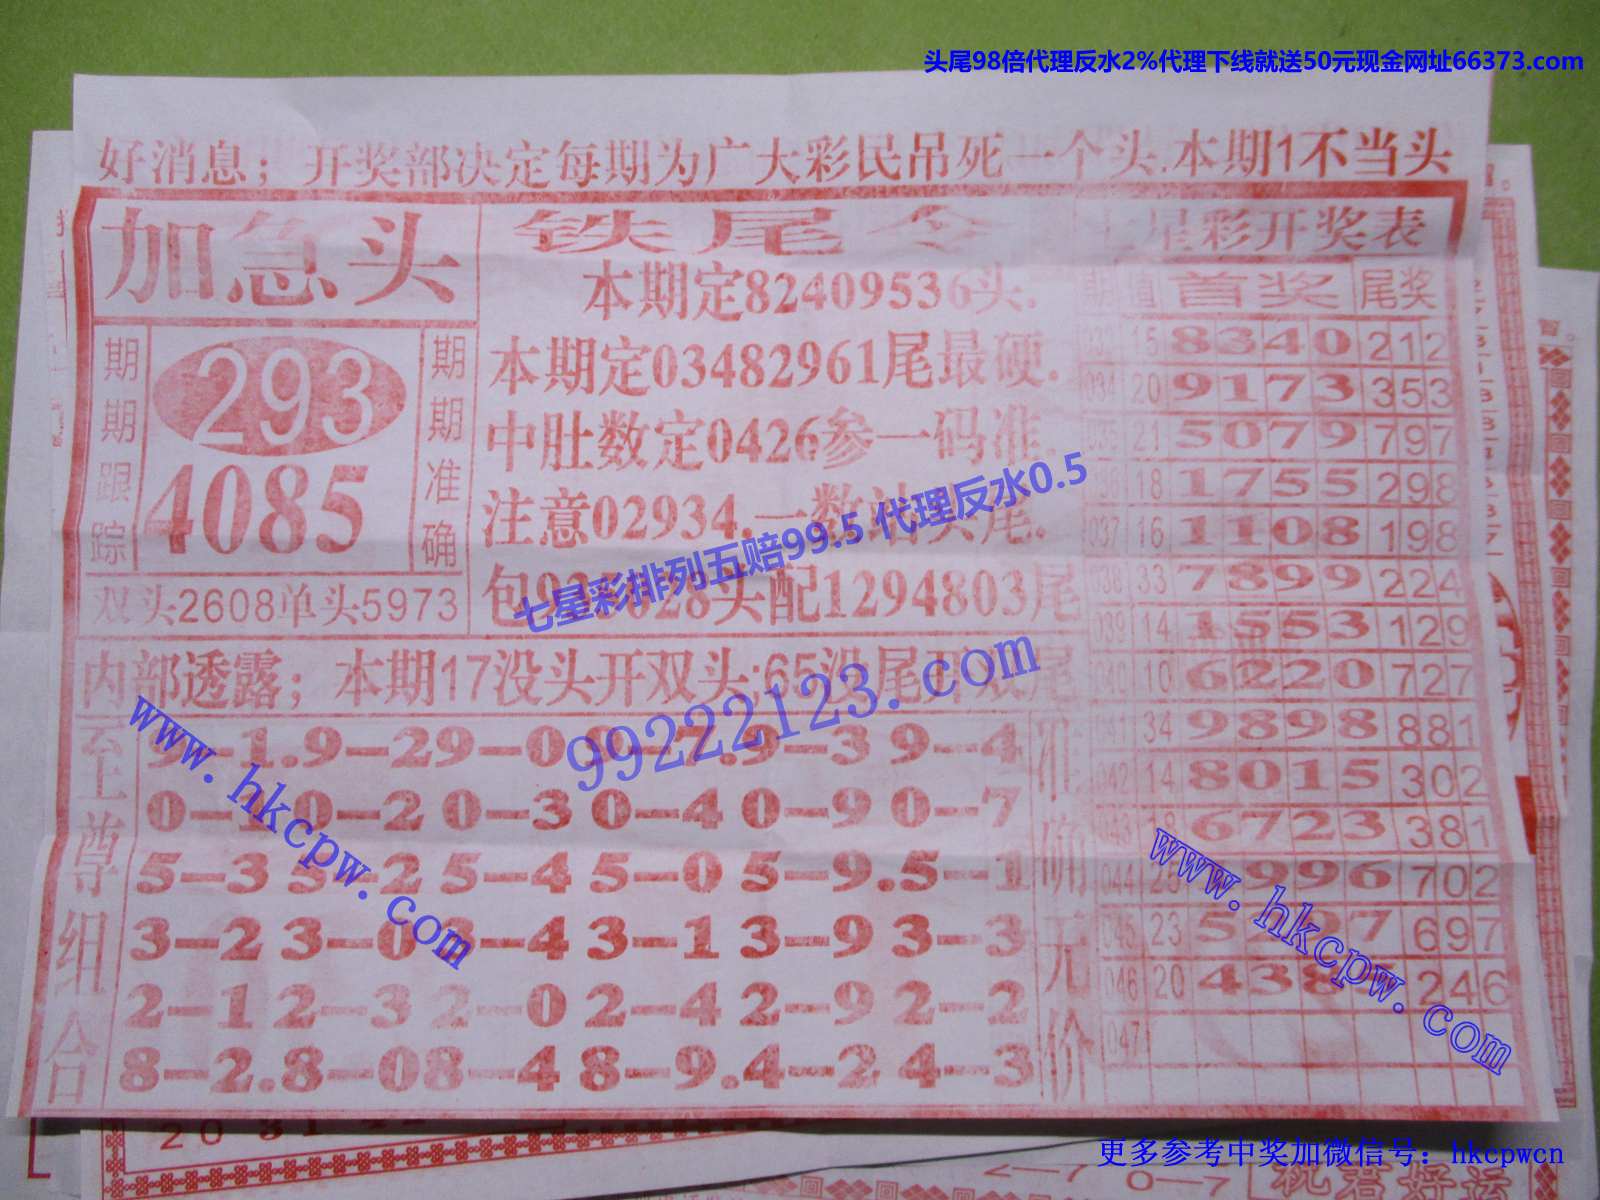 头尾98倍代理反水2%代理下线就送50元现金网址66373.com
好消息；开奖部决定每期为广大彩民吊死一个头.本期1不当头
加急头
期期跟踪
293
4085
期期准确
双头2608单头5973
铁尾令
本期定82409536头.
本期定03482961尾最硬.
中肚数定0426参一码准.
注意02934.一数
尾.
头配1294803尾
七星彩排列五赔99.5 代理反水0.5
内部透露；本期17没头开双头:65没尾开双尾
99222123.com
www.hkcpw.com
至上尊组合
9-4
0-2 0-3 0-4 0-9 0-7
5-3 5-2 5-4 5-0 5-9.5-1
3-2 3-0 3-4 3-1 3-9 3-3
2-1 2-3 2-0 2-4 2-9 2-2
8-2.8-0 8-4 8-9.4-2 4-3
准确无价
七星彩开奖表
期 值 首奖 尾奖
15 8340 212
034 20 9173 353
21 5079 797
18 1755 298
037 16 1108 198
33 7899 224
039 14 1553 129
10 6220 727
34 9898 881
042 14 8015 302
6723 381
044 996 702
23 697
046 20 438 246
047
www.hkcpw.com
更多参考中奖加微信号：hkcpwcn
祝君好运